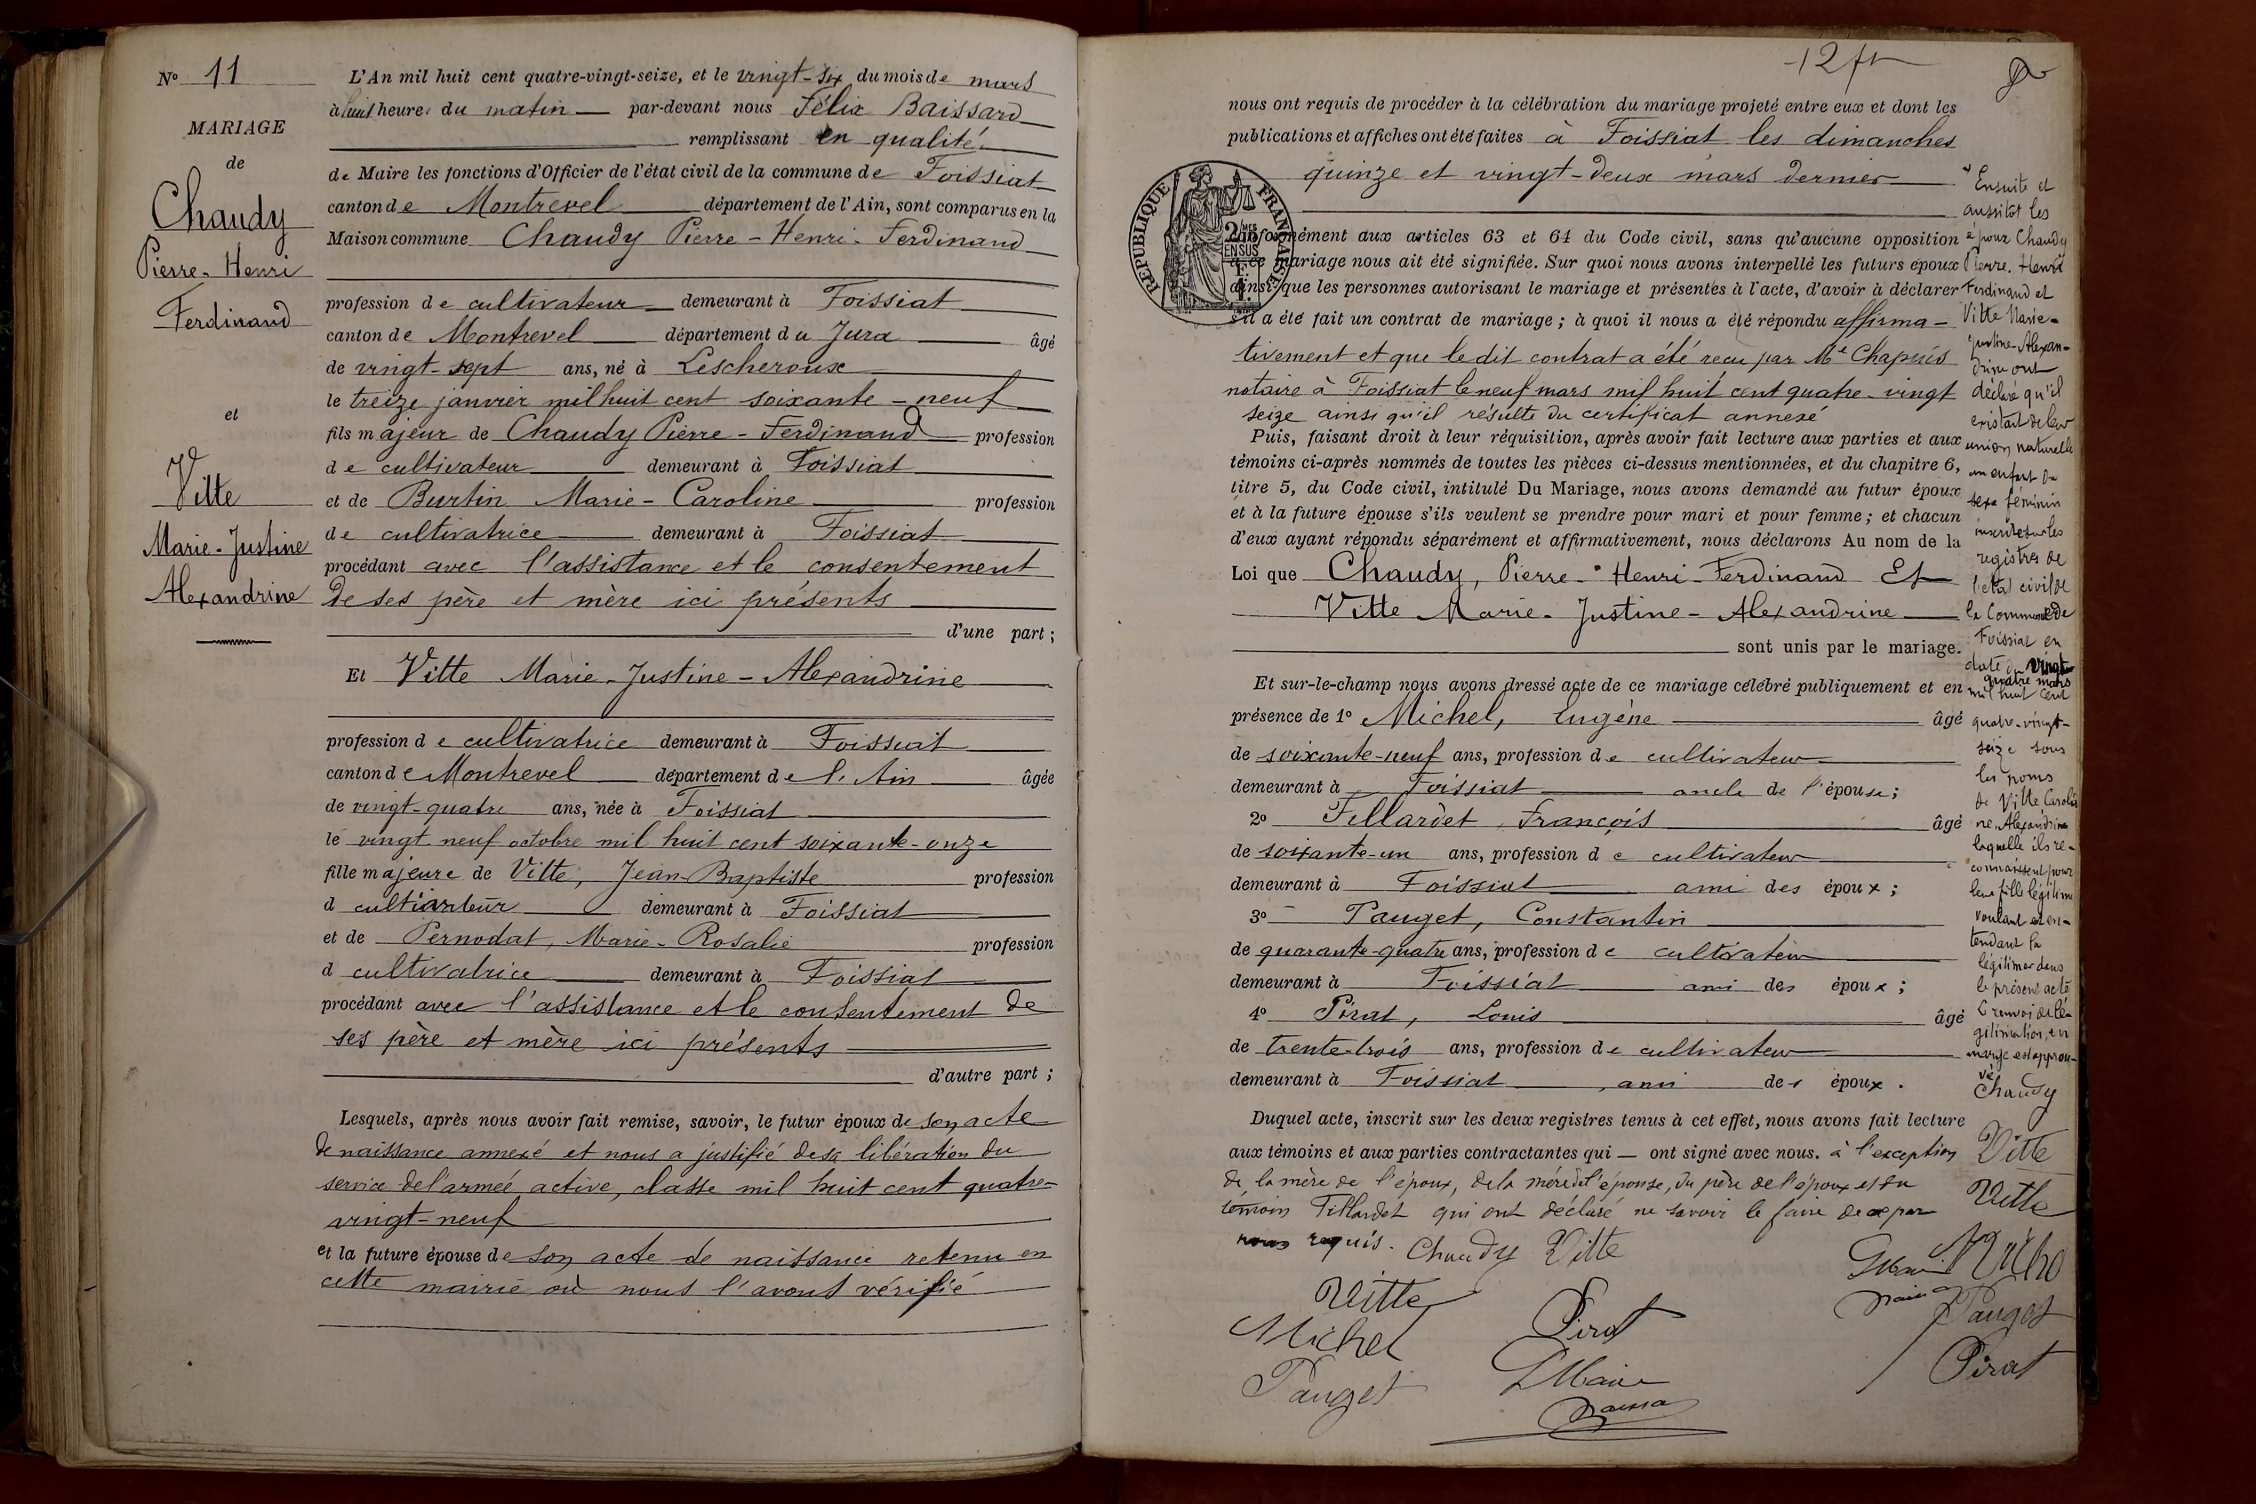 N° 11
MARIAGE
de
Chaudy
Pierre-Henri
Ferdinand
et
Vitte
Marie-Justine
Alexandrine
L'An mil huit cent quatre-vingt-seize, et le vingt-six du mois de mars
à huit heures du matin par-devant nous Félix Baissard
remplissant en qualité
de Maire les fonctions d'Officier de l'état civil de la commune de Foissiat
canton de Montrevel département de l'Ain, sont comparus en la
Maison commune Chaudy Pierre-Henri-Ferdinand
profession de cultivateur demeurant à Foissiat
canton de Montrevel département du Jura âgé
de vingt-sept ans, né à Lescheroux
le treize janvier mil huit cent soixante-neuf
fils majeur de Chaudy Pierre-Ferdinand profession
de cultivateur demeurant à Foissiat
et de Burtin Marie-Caroline profession
de cultivatrice demeurant à Foissiat
procédant avec l'assistance et le consentement
de ses père et mère ici présents
d'une part ;
Et Vitte Marie-Justine-Alexandrine
profession de cultivatrice demeurant à Foissiat
canton de Montrevel département de l'Ain âgée
de vingt-quatre ans, née à Foissiat
le vingt neuf octobre mil huit cent soixante-onze
fille majeure de Vitte, Jean-Baptiste profession
d cultivateur demeurant à Foissiat
et de Pernodat, Marie-Rosalie profession
d cultivatrice demeurant à Foissiat
procédant avec l'assistance et le consentement de
ses père et mère ici présents
d'autre part ;
Lesquels, après nous avoir fait remise, savoir, le futur époux de son acte
de naissance annexé et nous a justifié de sa libération du
service de l'armée active, classe mil huit cent quatre-
vingt-neuf
et la future épouse de son acte de naissance retenu en
cette mairie où nous l'avons vérifié
12
nous ont requis de procéder à la célébration du mariage projeté entre eux et dont les
publications et affiches ont été faites à Foissiat les dimanches
quinze et vingt-deux mars dernier
REPUBLIQUE FRANÇAISE
2/10MES EN SUS
conformément aux articles 63 et 64 du Code civil, sans qu'aucune opposition
à ce mariage nous ait été signifiée. Sur quoi nous avons interpellé les futurs époux
ainsi que les personnes autorisant le mariage et présentes à l'acte, d'avoir à déclarer
s'il a été fait un contrat de mariage ; à quoi il nous a été répondu affirma-
tivement et que ledit contrat a été reçu par Me Chapuis
notaire à Foissiat le neuf mars mil huit cent quatre-vingt
seize ainsi qu'il résulte du certificat annexé
Puis, faisant droit à leur réquisition, après avoir fait lecture aux parties et aux
témoins ci-après nommés de toutes les pièces ci-dessus mentionnées, et du chapitre 6,
titre 5, du Code civil, intitulé Du Mariage, nous avons demandé au futur époux
et à la future épouse s'ils veulent se prendre pour mari et pour femme ; et chacun
d'eux ayant répondu séparément et affirmativement, nous déclarons Au nom de la
Loi que Chaudy, Pierre-Henri-Ferdinand Et
Vitte Marie-Justine-Alexandrine
sont unis par le mariage.
Et sur-le-champ nous avons dressé acte de ce mariage célébré publiquement et en
présence de 1° Michel, Eugène âgé
de soixante-neuf ans, profession de cultivateur
demeurant à Foissiat oncle de l'épouse ;
2° Fillardet, François âgé
de soixante-un ans, profession de cultivateur
demeurant à Foissiat ami des époux ;
3° Pauget, Constantin
de quarante-quatre ans, profession de cultivateur
demeurant à Foissiat ami des époux ;
4° Pirat, Louis âgé
de trente-trois ans, profession de cultivateur
demeurant à Foissiat, ami des époux.
Duquel acte, inscrit sur les deux registres tenus à cet effet, nous avons fait lecture
aux témoins et aux parties contractantes qui ont signé avec nous. à l'exception
de la mère de l'époux, de la mère de l'épouse, du père de l'époux et du
témoin Fillardet qui ont déclaré ne savoir le faire de ce par
nous requis. Chaudy Vitte
Vitte
Michel
Pirat
Pauget
Le Maire
Baissard
Ensuite et
aussitôt les
époux Chaudy
Pierre-Henri
Ferdinand et
Vitte Marie-
Justine-Alexan-
drine ont
déclaré qu'il
existait de leur
union naturelle
un enfant du
sexe féminin
inscrite sur les
registres de
l'état civil de
la Commune de
Foissiat en
date du vingt
quatre mars
mil huit cent
quatre-vingt-
seize sous
les noms
de Vitte Caroli-
ne-Alexandrine
laquelle ils re-
connaissent pour
leur fille légitime
voulant et en-
tendant la
légitimer dans
le présent acte
Ce renvoi de lé-
gitimation, en
marge est approu-
vé
Chaudy
Vitte
Vitte
Pauget
Pirat